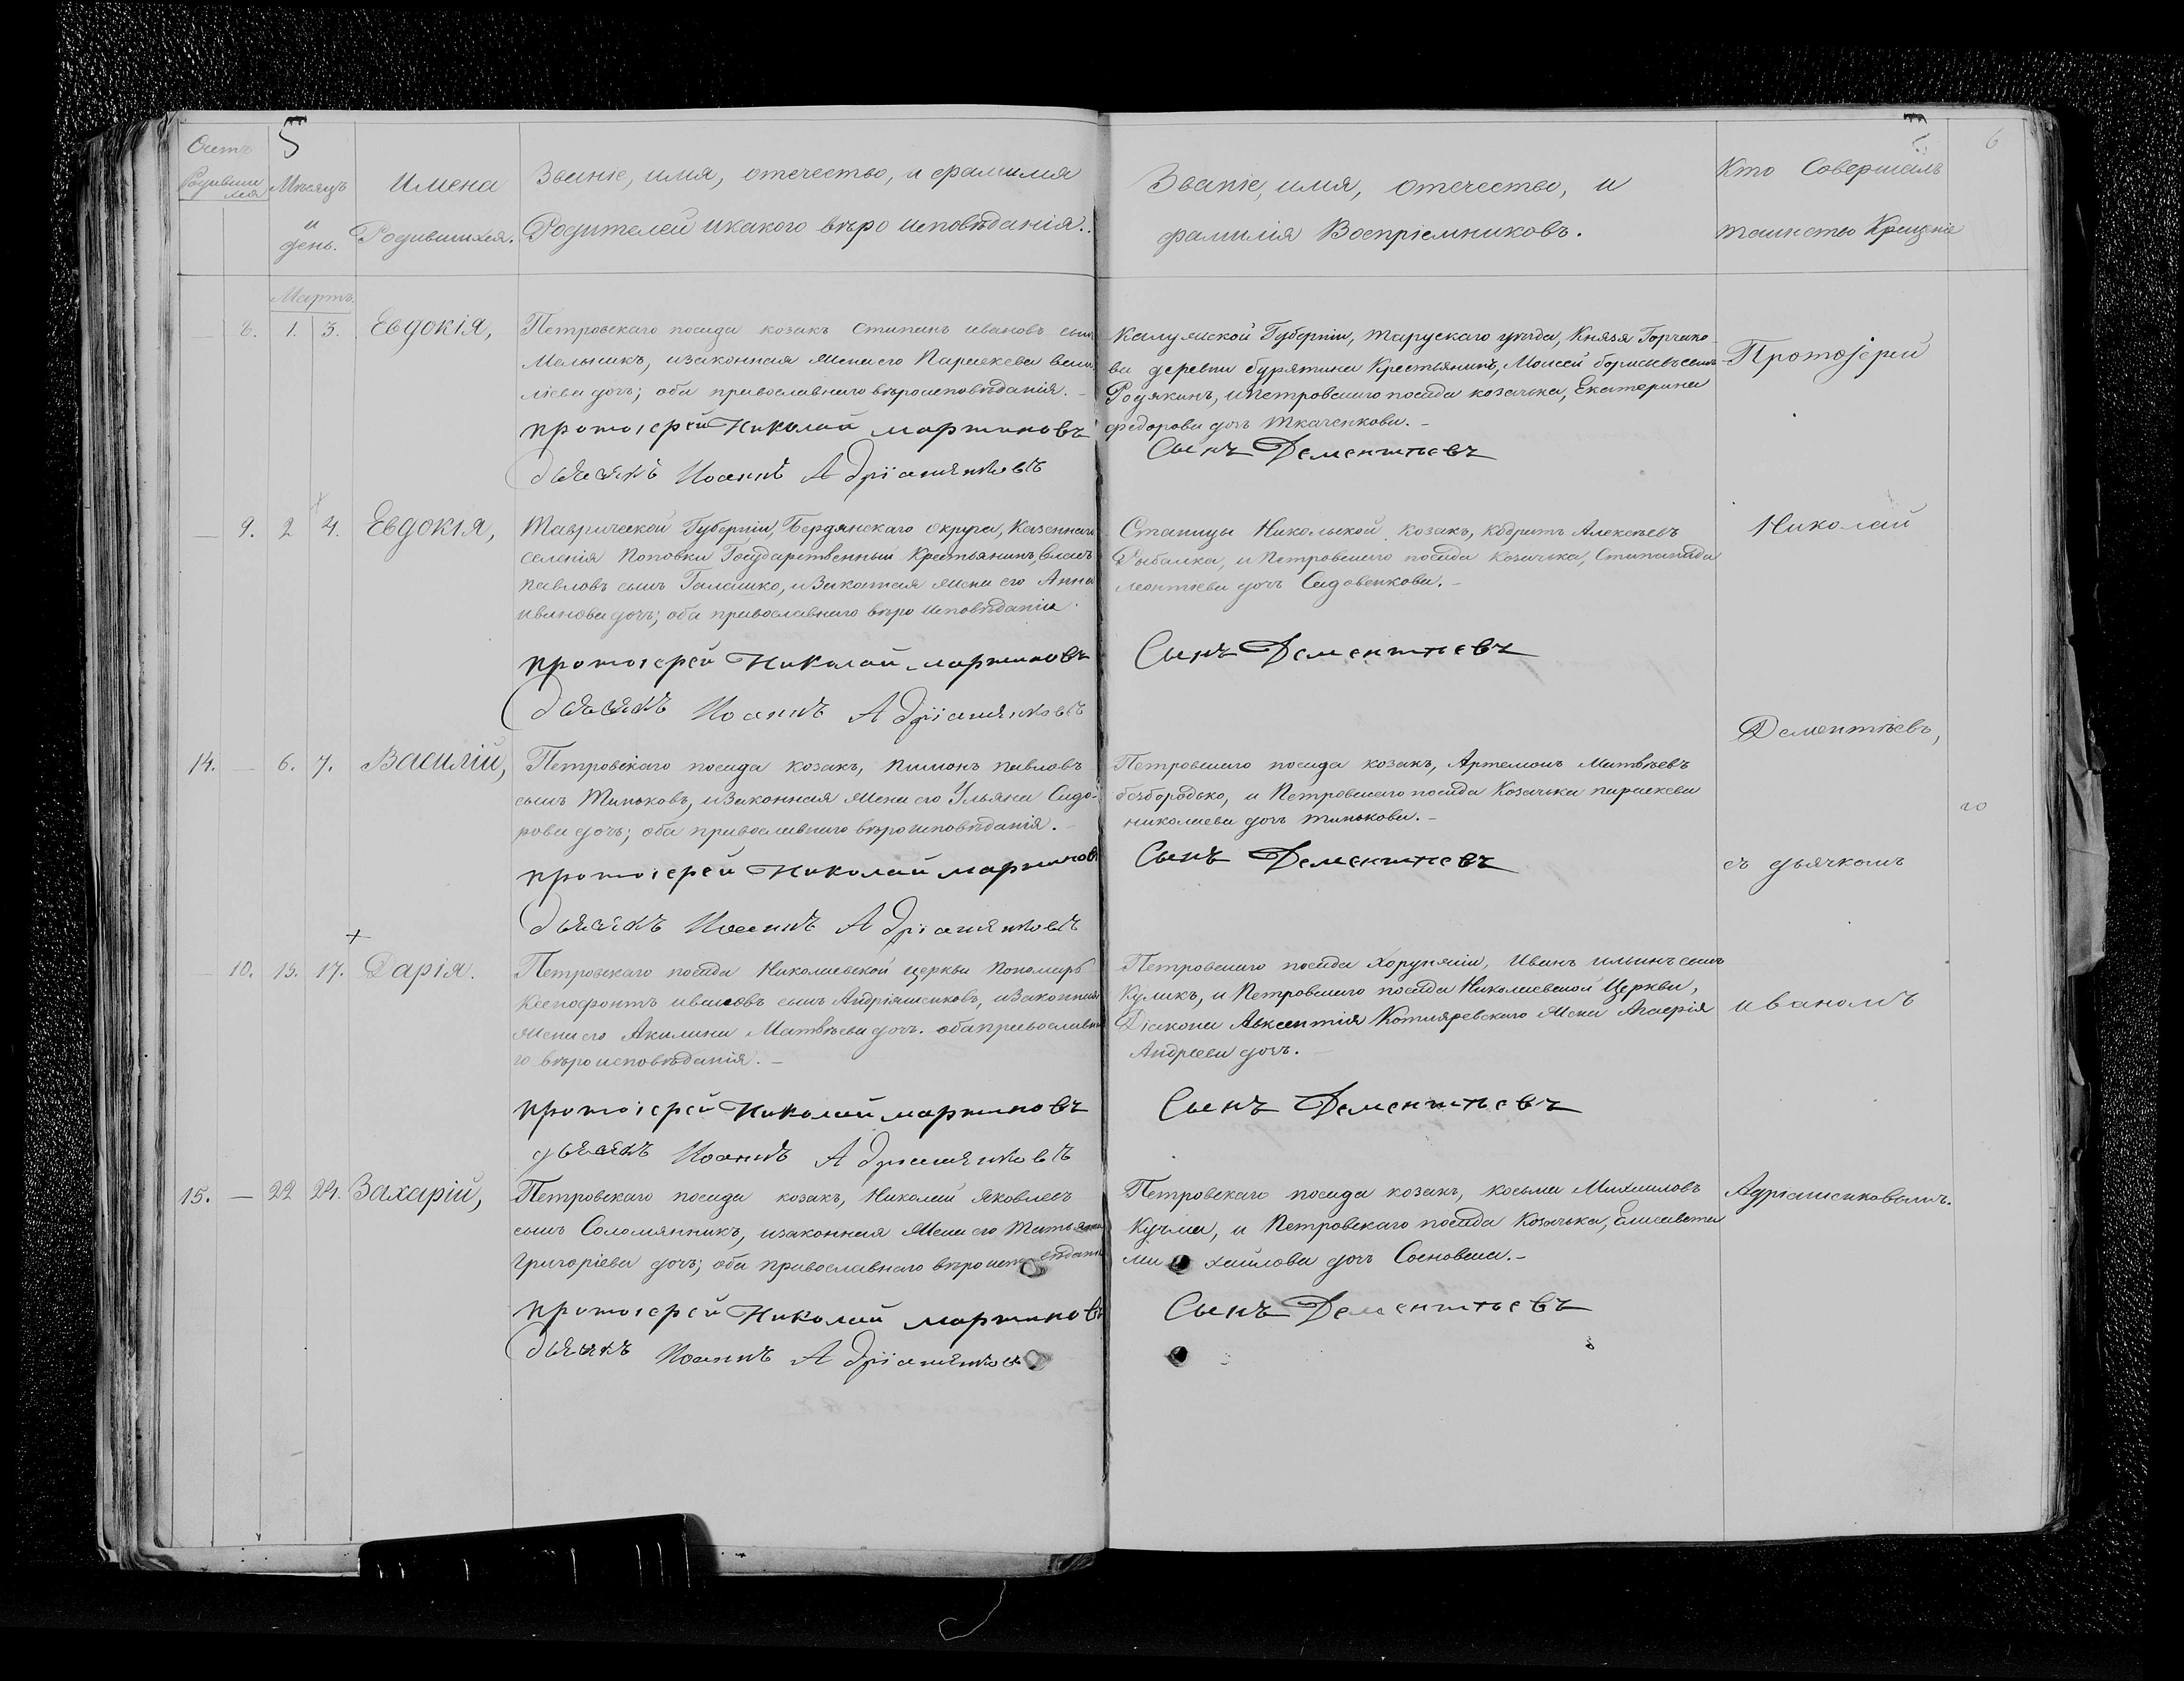 Счетъ
Родивших
ся
5
Мѣсяцъ
и
день.
Имена
Родившихся.
Званіе, имя, отечество, и фамилия
Родителей и какого вѣро исповѣданія.
Званіе, имя, отечество, и
фамилія Воспріемниковъ.
Кто Совершалъ
таинство Крещенія
6
Мартъ.
8. 1. 3. Евдокія,
Петровскаго посада козакъ Стипанъ ивановъ сынъ
Мельникъ, и законная жена его Параскева васи
лиева дочь; оба православнаго вѣроисповѣданія. -
протоіерей Николай мартиновъ
дьячокъ Иоаннъ Адріашенковъ
Калужской Губерніи, тарускаго уѣзда, Князя Горчако
ва деревни бурятина Крестьянинъ, Моисей борисовъ сынъ
Родякинъ, и петровскаго посада козачька, Екатерина
федорова дочь Ткаченкова. -
Сынъ Дементьевъ
Протоіерей
9. 2 4. Евдокія,
Таврической Губерніи, Бердянскаго округа, Казеннаго
селенія Поповки Государственный Крестьянинъ, Власъ
павловъ сынъ Галашко, и Законная жена его Анна
иванова дочь; оба православнаго вѣро исповѣданія.
протоіерей Николай мартиновъ
дьячокъ Иоаннъ Адріашенковъ
Станицы Никольской козакъ, Кодратъ Алексѣевъ
Рыбалка, и Петровскаго посада Козачька, Стипанида
леонтіева дочь Садовенкова. -
Сынъ Дементьевъ
Николай
Дементіевъ,
14. — 6. 7. Василій,
Петровскаго посада козакъ, пимонъ павловъ
сынъ Тиньковъ, и Законная жена его Ульяна Сидо-
рова дочь; оба православнаго вѣроисповѣданія. -
протоіерей Николай мартиновъ
дьячокъ Иоаннъ Адріашенковъ
Петровскаго посада козакъ, Артемонъ Матвѣевъ
безбородько, и Петровскаго посада Козачька параскева
николаева дочь тинькова. -
Сынъ Дементьевъ
съ дьячкомъ
— 10. 15. 17. Дарія.
Петровскаго посада Николаевской церкви Пономарь
Ксенофонтъ ивановъ сынъ Андріяшенковъ, и Законная
жена его Акилина Матвѣева дочь. оба православна
го вѣро исповѣданія. -
протоіерей Николай мартиновъ
дьячокъ Иоаннъ Адриашенковъ
Петровскаго посада хорунжій, Иванъ ильинъ сынъ
Куликъ, и Петровскаго посада Николаевской Церкви,
Діакона Авксентія Котляревскаго жена Агафія
Андреева дочь.
Сынъ Дементьевъ
иваномъ
15. — 22 24. Захарій,
Петровскаго посада козакъ, Николай Яковлевъ
сынъ Соломянникъ, и законная жена его Татьяна
Григоріева дочь; оба православнаго вѣро исповѣдани
протоіерей Николай мартиновъ
дьячокъ Иоаннъ Адріашенковъ
Петровскаго посада козакъ, косьма Михаиловъ
Кучма, и Петровскаго посада Козачька, Елисавета
ми хаилова дочь Сосновша. -
Сынъ Дементьевъ
Адріашенковымъ.